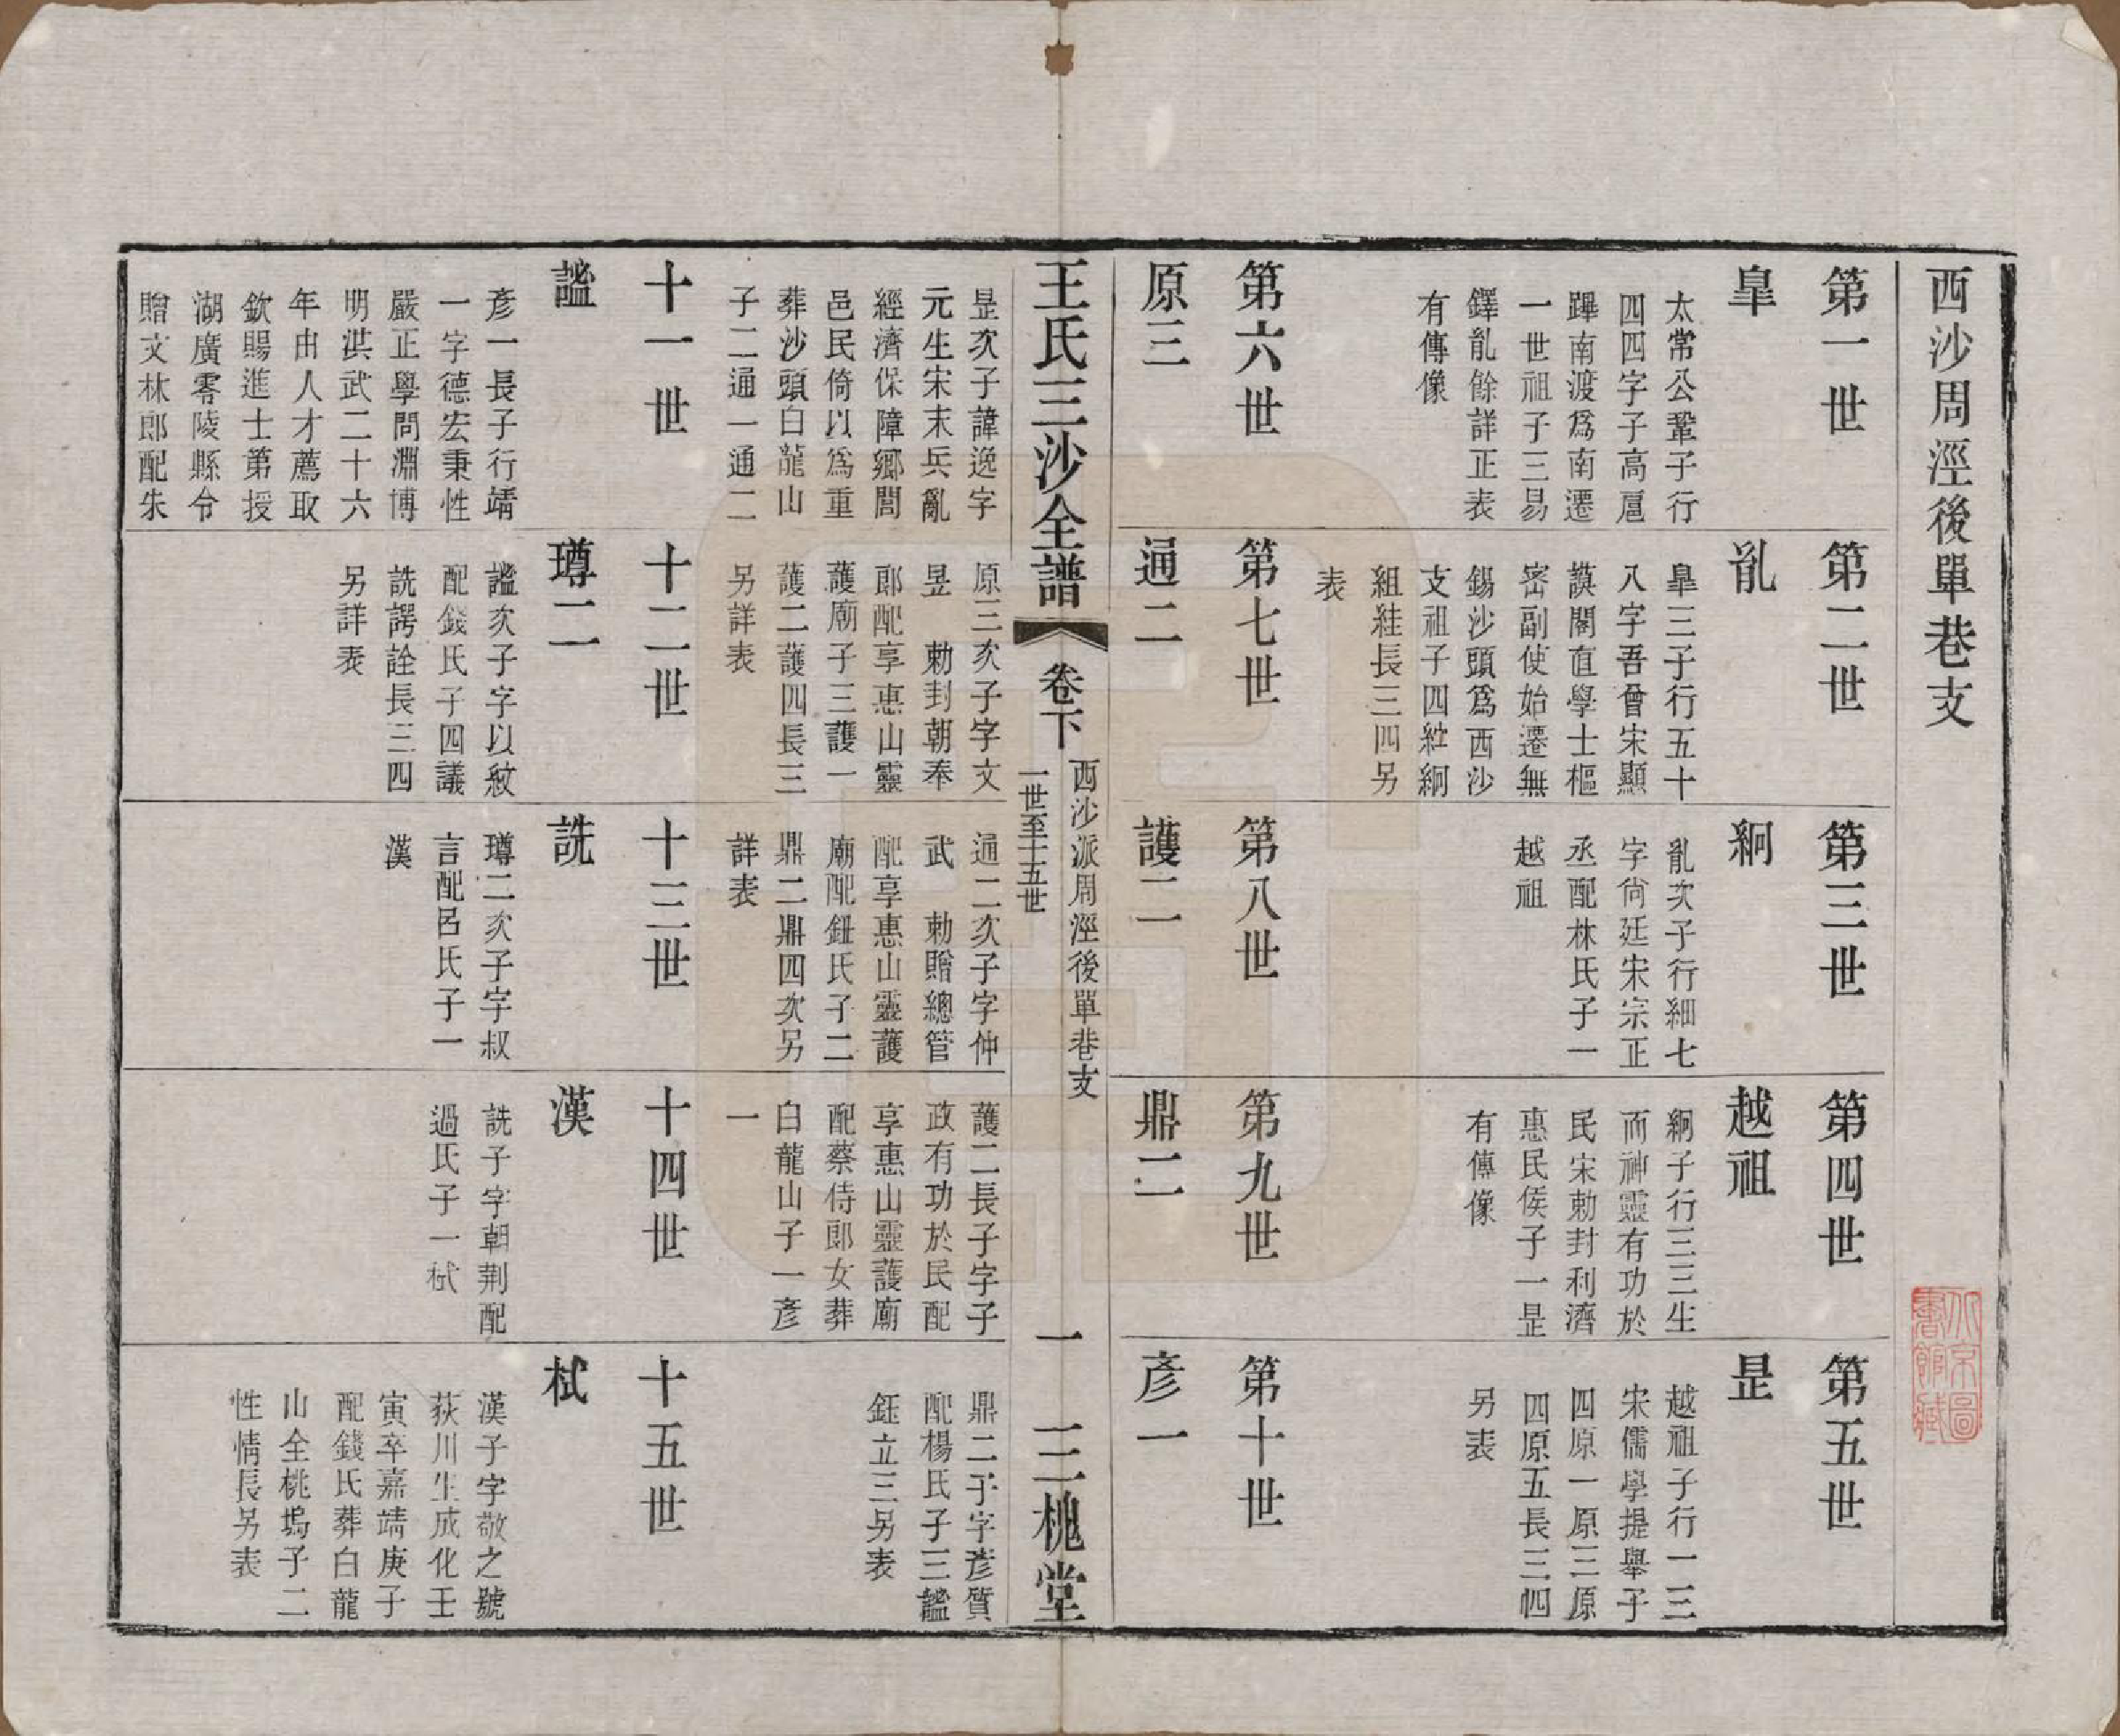 西沙周涇後單巷支
第一世
皐
太常公鞏子行
四四字子高扈
蹕南渡爲南遷
一世祖子三易
鐸亂餘詳正表
有傳像
第二世
亂
皐三子行五十
八字吾曾宋顯
謨閣直學士樞
密副使始遷無
錫沙頭爲西沙
支祖子四絟絅
組絓長三四另
表
第三世
絅
亂次子行細七
字尙廷宋宗正
丞配林氏子一
越祖
第四世
越祖
絅子行三三生
而神靈有功於
民宋勅封利濟
惠民侯子一昰
有傳像
第五世
昰
越祖子行一三
宋儒學提舉子
四原一原三原
四原五長三四
另表
第六世
原三
昰次子諱逸字
元生宋末兵亂
經濟保障鄉閭
邑民倚以爲重
葬沙頭白龍山
子二通一通二
第七世
通二
原三次子字文
昱 勅封朝奉
郎配享惠山靈
護廟子三護一
護二護四長三
另詳表
第八世
護二
通二次子字仲
武 勅贈總管
配享惠山靈護
廟配鈕氏子二
鼎二鼎四次另
詳表
第九世
鼎二
護二長子字子
政有功於民配
享惠山靈護廟
配蔡侍郎女葬
白龍山子一彥
一
第十世
彥一
鼎二子字彥質
配楊氏子三謐
鈺立三另表
王氏三沙全譜
卷下
西沙派周涇後單巷支
一世至十五世
一
三槐堂
十一世
謐
彥一長子行靖
一字德宏秉性
嚴正學問淵博
明洪武二十六
年由人才薦取
欽賜進士第授
湖廣零陵縣令
贈文林郎配朱
十二世
璹二
謐次子字以紋
配錢氏子四議
詵諤詮長三四
另詳表
十三世
詵
璹二次子字叔
言配呂氏子一
漢
十四世
漢
詵子字朝荆配
過氏子一栻
十五世
栻
漢子字敬之號
荻川生成化壬
寅卒嘉靖庚子
配錢氏葬白龍
山全桃塢子二
性情長另表